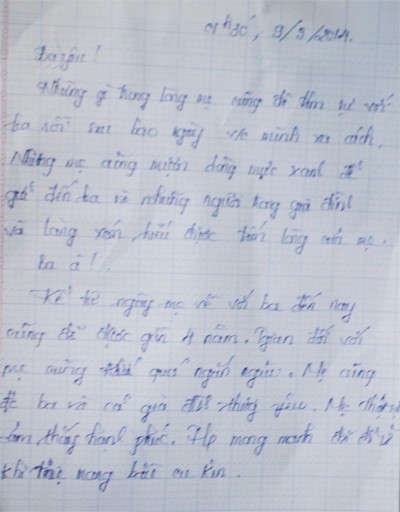 01h30, 9/3/2014.
Ba yêu!
Những gì trong lòng mẹ cũng đã tâm sự với
ba rồi sau bao ngày v/c mình xa cách.
Nhưng mẹ cũng mượn dòng mực xanh để
gửi đến ba và những người trong gia đình
và làng xóm hiểu được tấm lòng của mẹ.
Ba à!
Kể từ ngày mẹ về với ba đến nay
cũng đã được gần 4 năm. T.gian đối với
mẹ cũng quá ngắn ngủi. Mẹ cũng
đc ba và cả gia đình thương yêu. Mẹ
cảm thấy hạnh phúc. Hp mong manh đã
khi mang bầu cu kin.